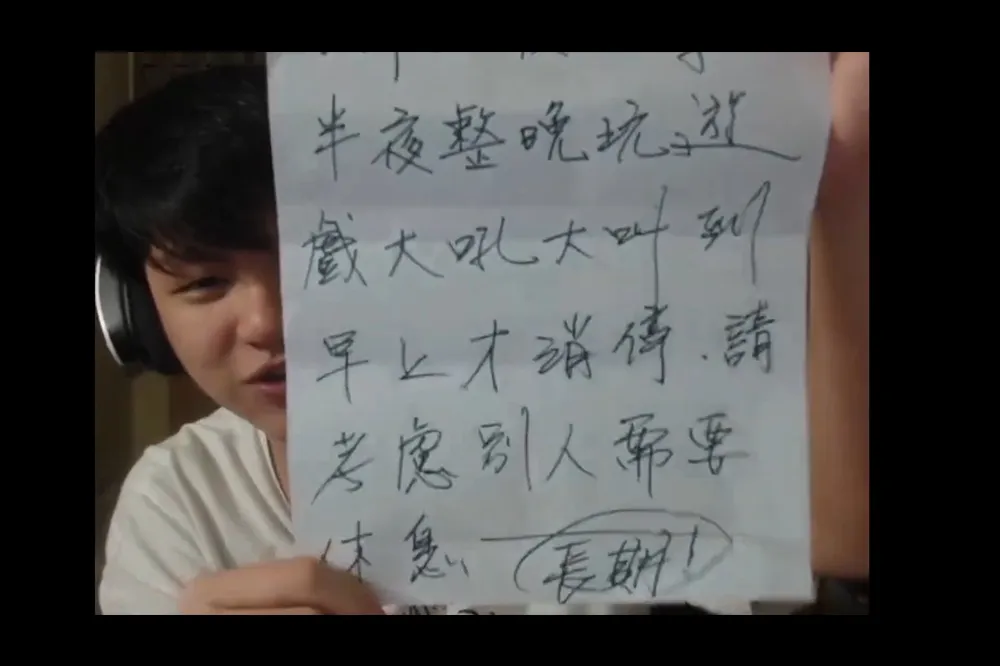 半夜整晚玩遊
戲大吼大叫到
早上才消停.請
考慮別人需要
休息 長期!